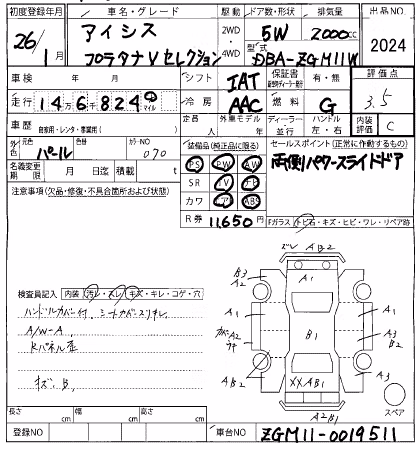 初度登録年月 車名・グレード 駆動 ドア数・形状 排気量 出品NO
26/1月 アイシス 2WD・4WD 5W 2000cc 2024
プラタナVセレクション 型式 DBA-ZGM11W
車検 年 月 シフト IAT 保証書 有・無 評価点
走行 14万6千824 マイル 冷房 AAC 燃料 G 3.5
車歴 自家用・レンタ・事業用( ) 定員 人 外車モデル年 AW ディーラー 並行 ハンドル 左・右 内装評価 C
外色 元色 パール 色替 カラーNO 070 装備品(純正品に限る) セールスポイント(正常に作動するもの)
名義変更期限 月 日迄 積載 t PS PW AW 両側パワースライドドア
注意事項(欠品・修復・不具合箇所および状態) SR TV ナビ
カワ エア ABS
R券 11,650円 Fガラス トビ石・キズ・ヒビ・ワレ・リペア跡
ズレ AB2
B3 A2 A1 A3
検査員記入 内装 汚レ・スレ・キズ・キレ・コゲ・穴
ハンドルカバー付、シートカバースリキレ A2 B1 A1
A/W-A A3 B2
Rパネル歪
キズ、B、 A B2 XXAB1 A3
長さ cm 幅 cm 高さ cm A2B1 スペア
登録NO 車台NO ZGM11-0019511